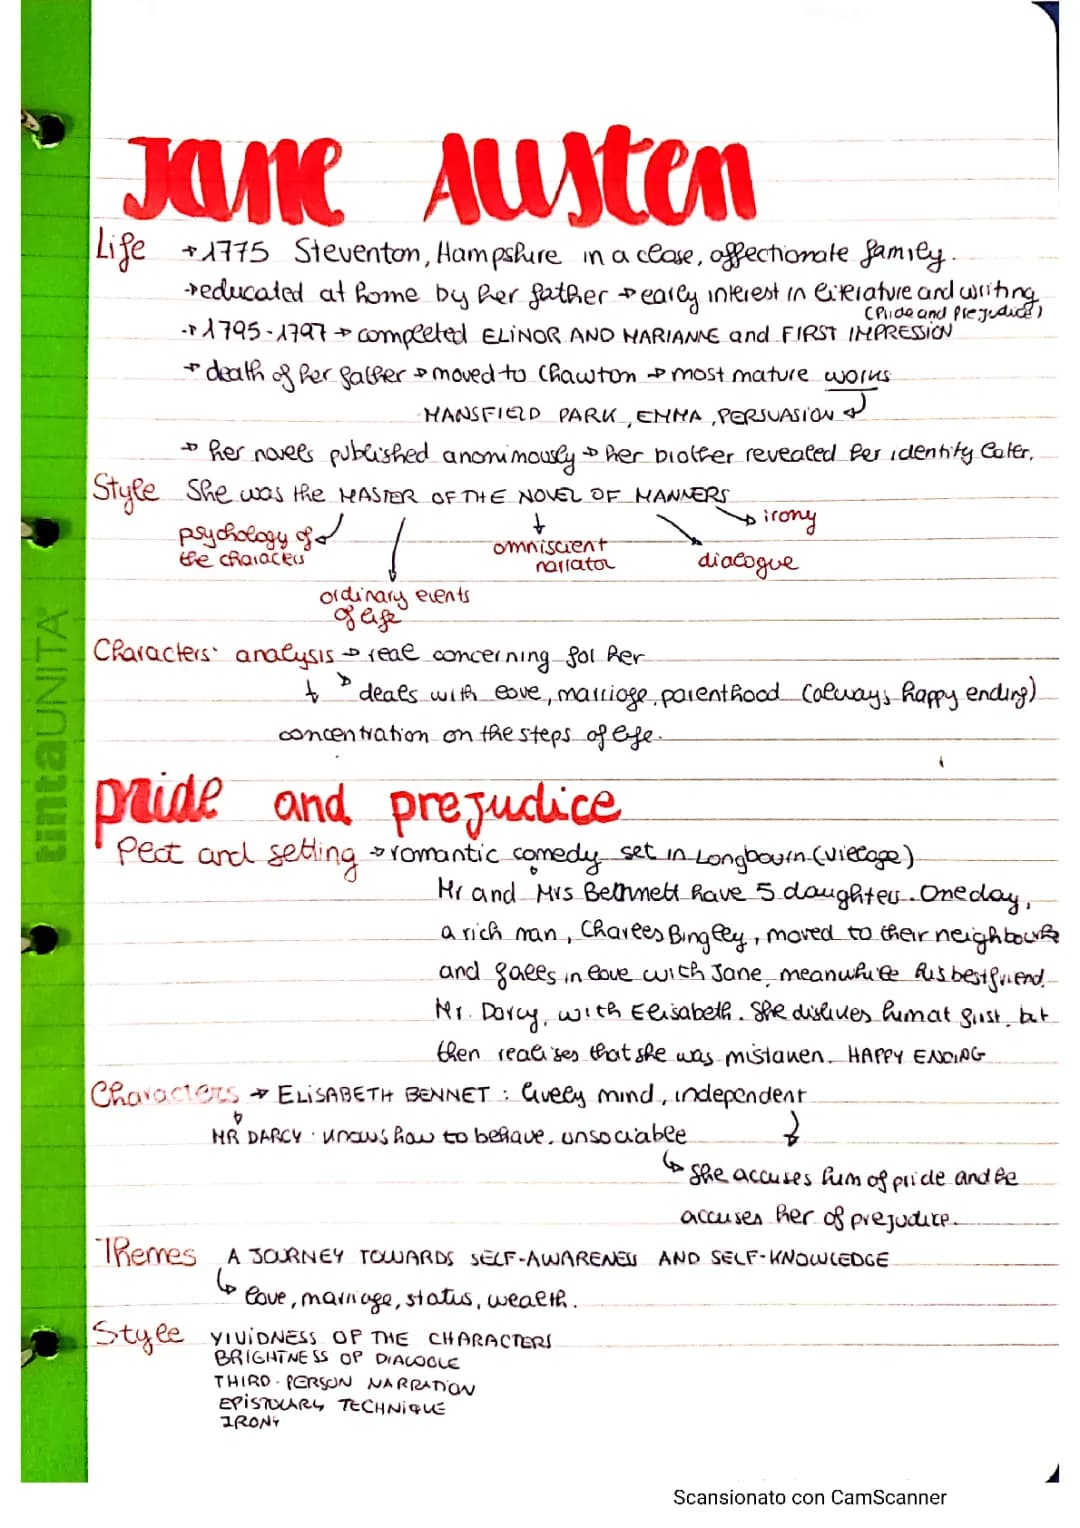 Jane Austen
Life → 1775 Steventon, Hampshire in a close, affectionate family.
→ educated at home by her father → early interest in literature and writing
(Pride and Prejudice)
→ 1795-1797 → completed ELINOR AND MARIANNE and FIRST IMPRESSION
→ death of her father → moved to Chawton → most mature works
MANSFIELD PARK, EMMA, PERSUASION
→ her novels published anonimously → her brother revealed her identity later.
Style She was the MASTER OF THE NOVEL OF MANNERS
irony
psychology of
the characters
omniscient
narrator
dialogue
ordinary events
of life
Characters' analysis → real concerning for her
→ deals with love, marriage, parenthood (always happy ending)
concentration on the steps of life.
pride and prejudice
Plot and setting → romantic comedy set in Longbourn (village)
Mr and Mrs Bethnett have 5 daughters. One day,
a rich man, Charles Bingley, moved to their neighbourh
and falls in love with Jane, meanwhile his best friend
Mr. Darcy, with Elisabeth. She dislikes him at first, but
then realises that she was mistaken. HAPPY ENDING
Characters → ELISABETH BENNET : lively mind, independent
MR DARCY : knows how to behave, unsociable
She accuses him of pride and he
accuses her of prejudice.
Themes A JOURNEY TOWARDS SELF-AWARENESS AND SELF-KNOWLEDGE
love, marriage, status, wealth.
Style VIVIDNESS OF THE CHARACTERS
BRIGHTNESS OF DIALOGUE
THIRD-PERSON NARRATION
EPISTOLARY TECHNIQUE
IRONY
tintaUNITA
Scansionato con CamScanner